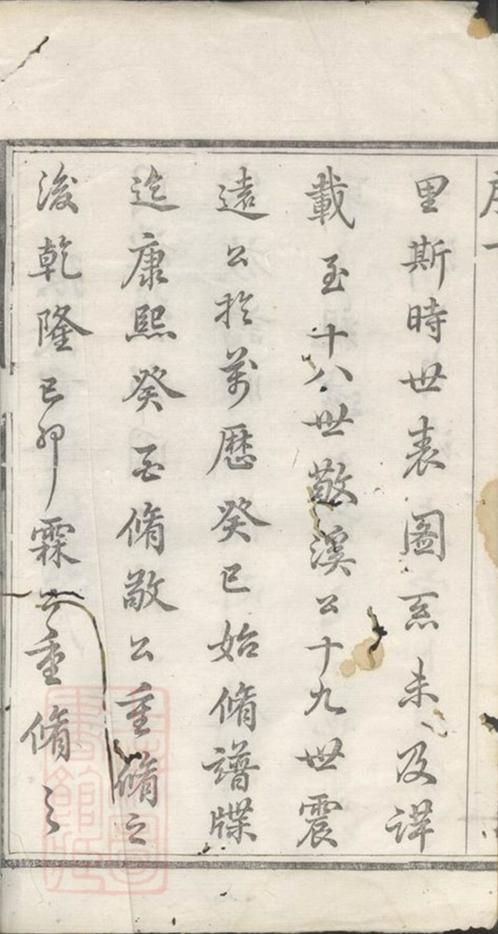 里斯時世表圖系未及詳
載至十八世敬溪公十九世震
遠公於萬歷癸巳始脩譜牒
迄康熙癸酉脩敬公重脩之
後乾隆己卯霖公重脩之